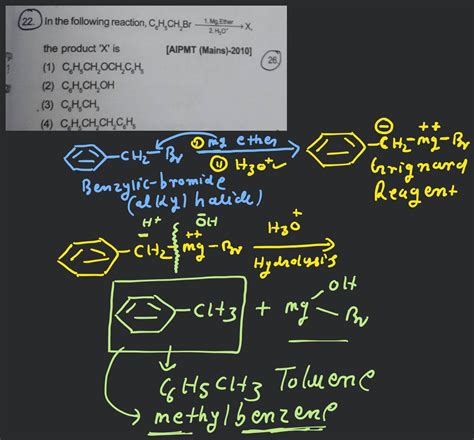 22. In the following reaction, C₆H₅CH₂Br 1. Mg, Ether 2. H₃O⁺ → X,
the product 'X' is [AIPMT (Mains)-2010]
26.
(1) C₆H₅CH₂OCH₂C₆H₅
(2) C₆H₅CH₂OH
(3) C₆H₅CH₃
(4) C₆H₅CH₂CH₂C₆H₅
CH₂-Br ① mg ether
② H₃O⁺
⊖ CH₂-mg++-Br
Grignard
Reagent
Benzylic-bromide
(alkyl halide)
H⁺ ŌH
CH₂⁻ mg++-Br H₃O⁺
Hydrolysis
-CH3 + mg OH Br
C6H5CH3 Toluene
methylbenzene